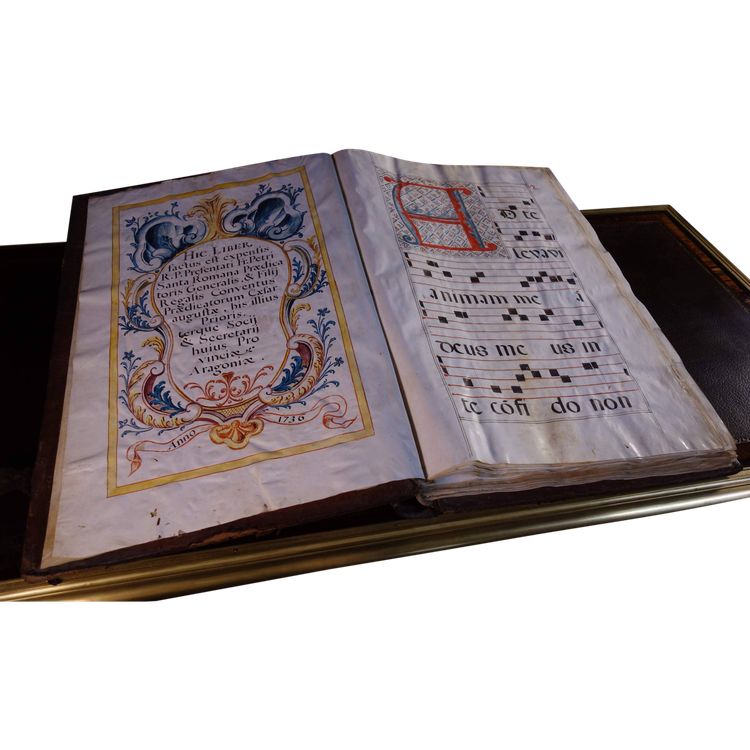 HIC LIBER
factus est expensis
R. P. Præsentati Fr. Petri
Santa Romana Prædica
toris Generalis, & Filij
Regalis Conventus
Prædicatorum Cæsar
augustæ, bis illius
Prioris,
terque Socij
& Secretarij
huius Pro
vinciæ
Aragoniæ.
Anno 1736
A D te
levavi
animam me
deus me us in
te cõfi do non